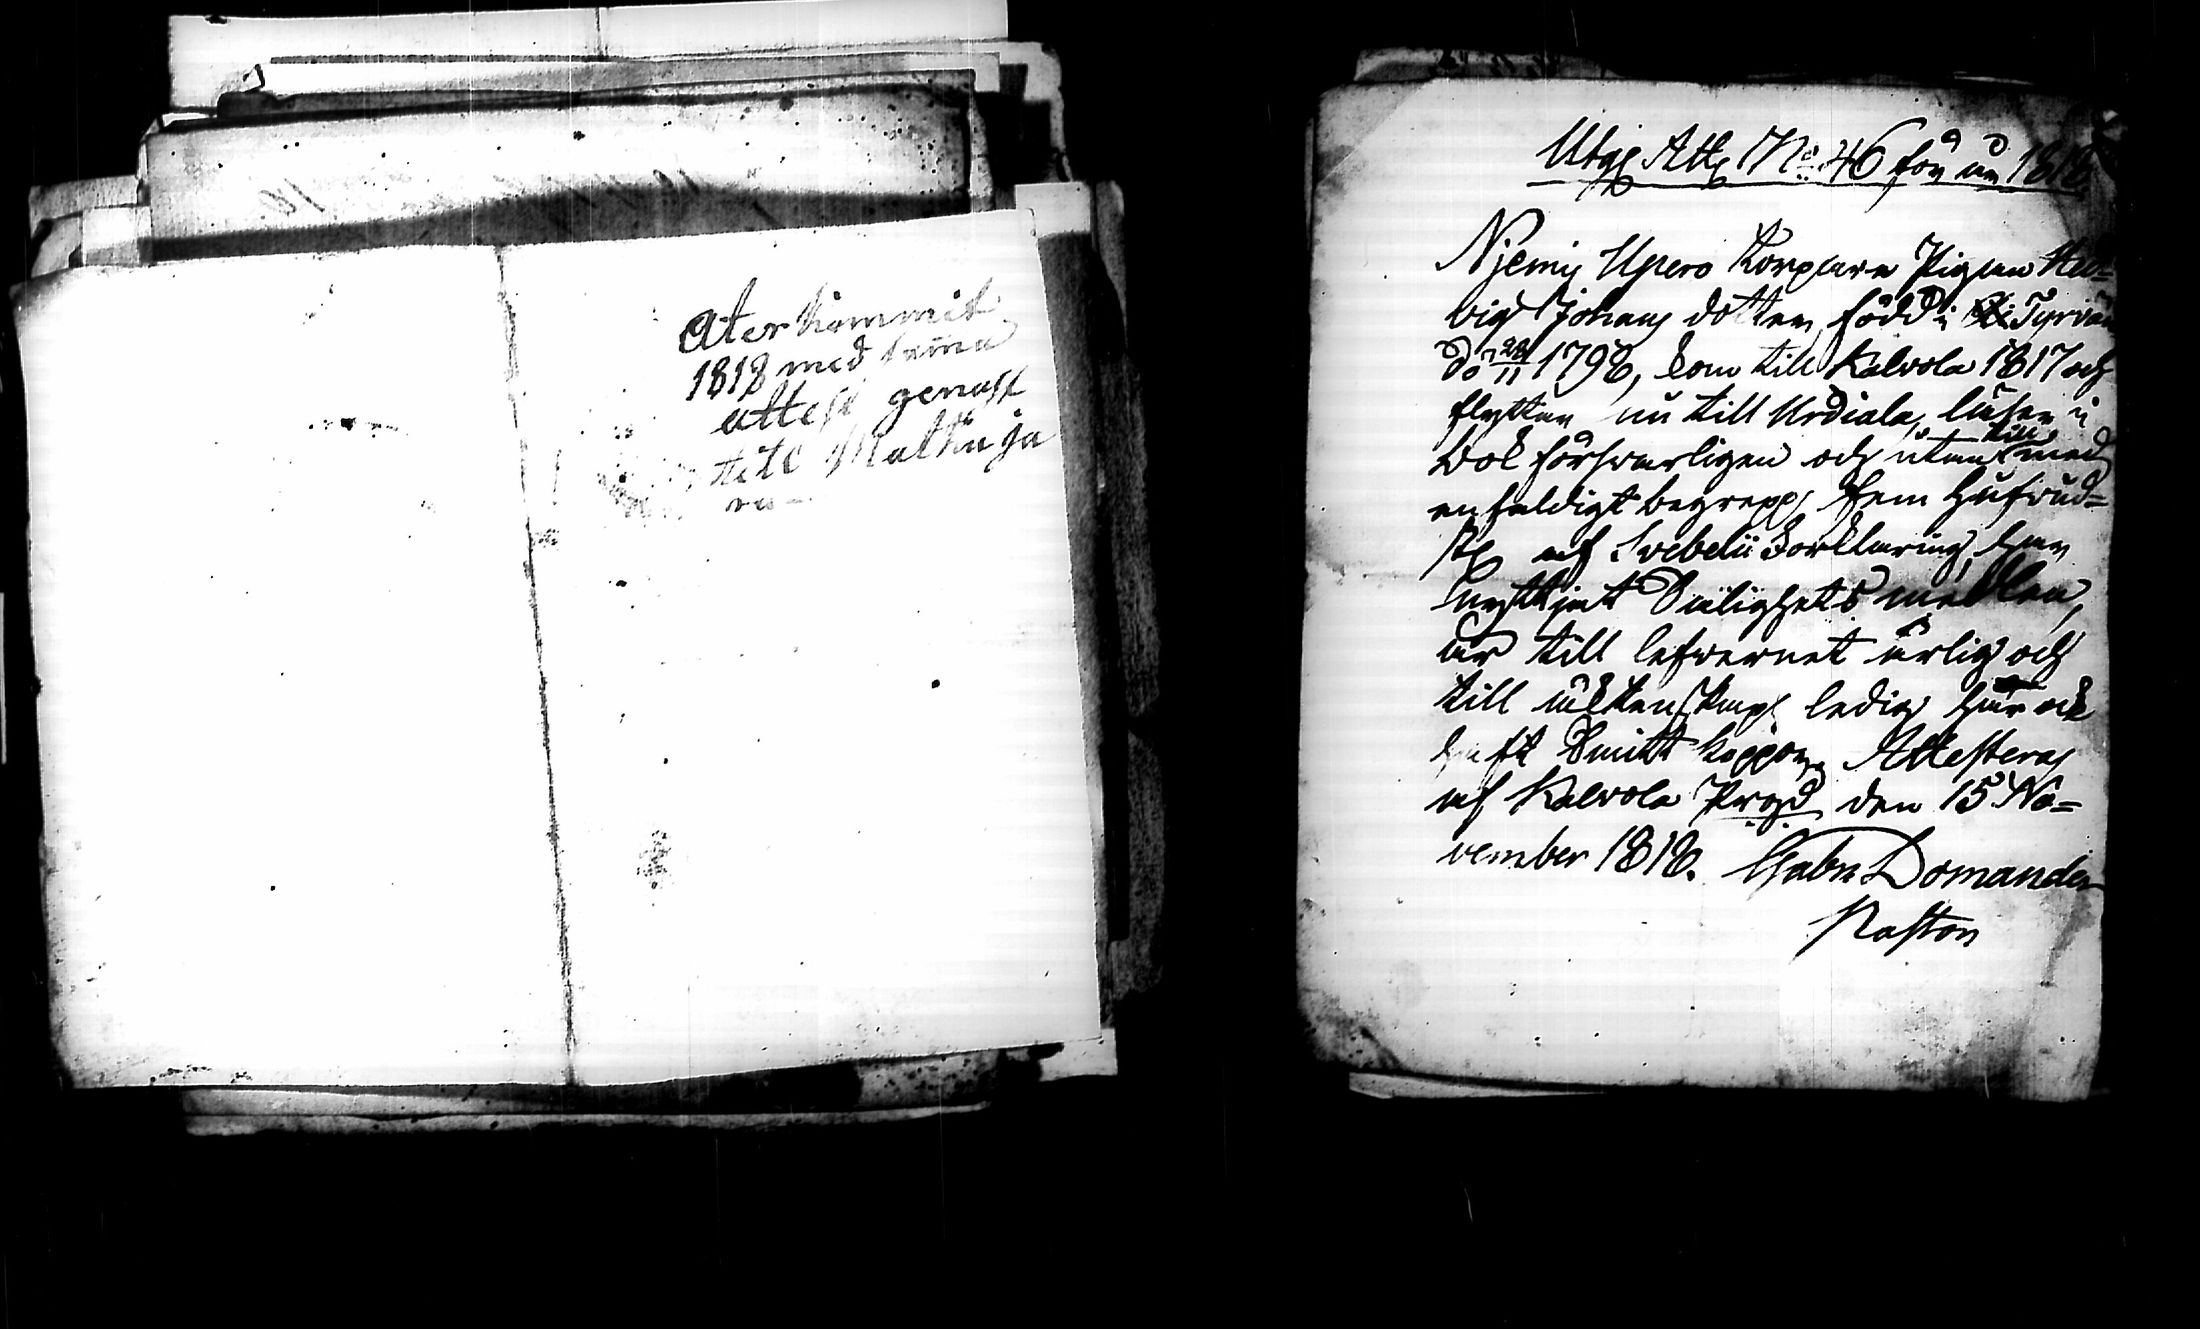 Åter kommit
1818 med samma
attest genast
till Malkaja
ra –
Utg. Att. No. 46 för år 1818.
Njemis Upero Torpare Pigan Hed=
vig Johans dotter, född i Tyrvis
d. 22/11 1798, kom till Kalvola 1817 och
flyttar nu till Urdiala, läser i
bok försvarligen och utan till med
enfaldigt begrepp, fem Hufvud=
st. af Svebelii Förklaring, har
nyttjat Salighets medlen,
är till lefvernet ärlig och
till äktenskap ledig har ock
haft Smitt koppor. Attesteras
af Kalvola Prgd den 15 No=
vember 1818. Gabr Domander
Pastor